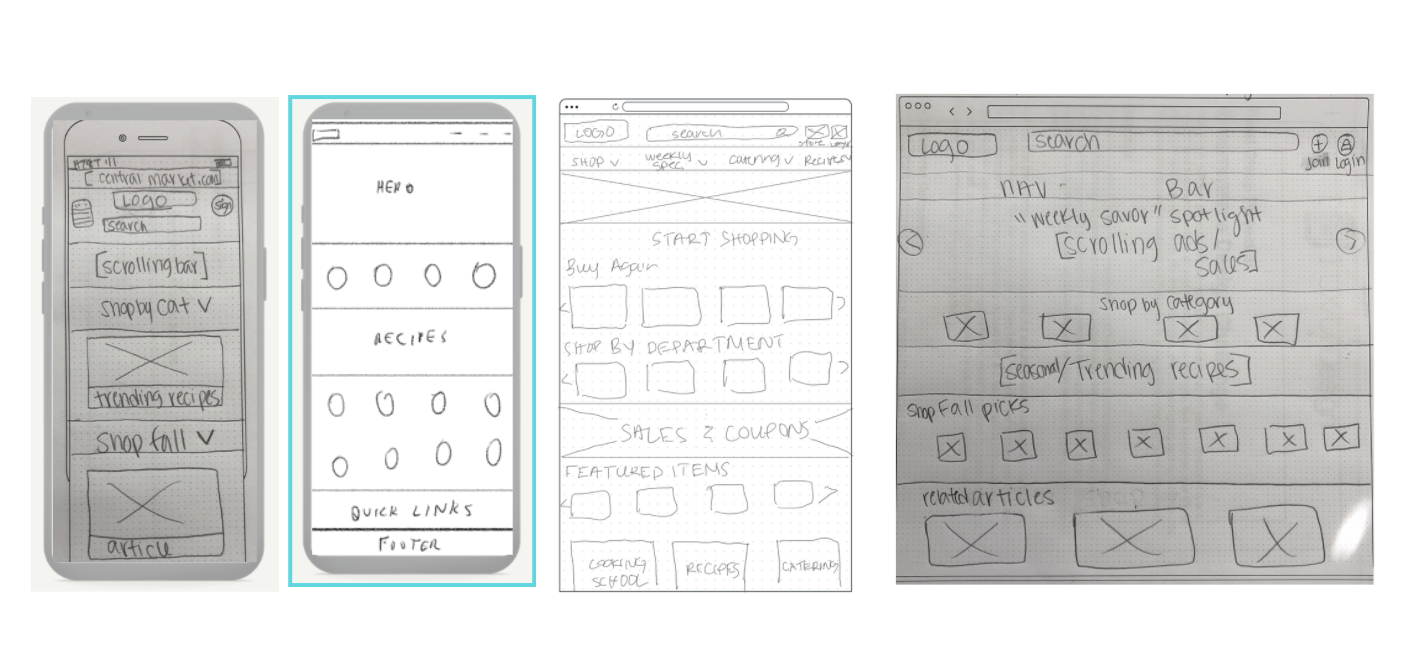 AT&T
[central market.com]
LOGO
sign
search
[scrolling bar]
shop by cat
trending recipes
shop fall
article
HERO
RECIPES
QUICK LINKS
FOOTER
LOGO
search
store
Login
SHOP
weekly
spec.
catering
Recipes
START SHOPPING
Buy Again
SHOP BY DEPARTMENT
SALES & COUPONS
FEATURED ITEMS
COOKING
SCHOOL
RECIPES
CATERING
Logo
search
Join
login
NAV - Bar
"weekly savor" spotlight
[scrolling ads/
sales]
shop by category
[seasonal/Trending recipes]
shop Fall picks
related articles